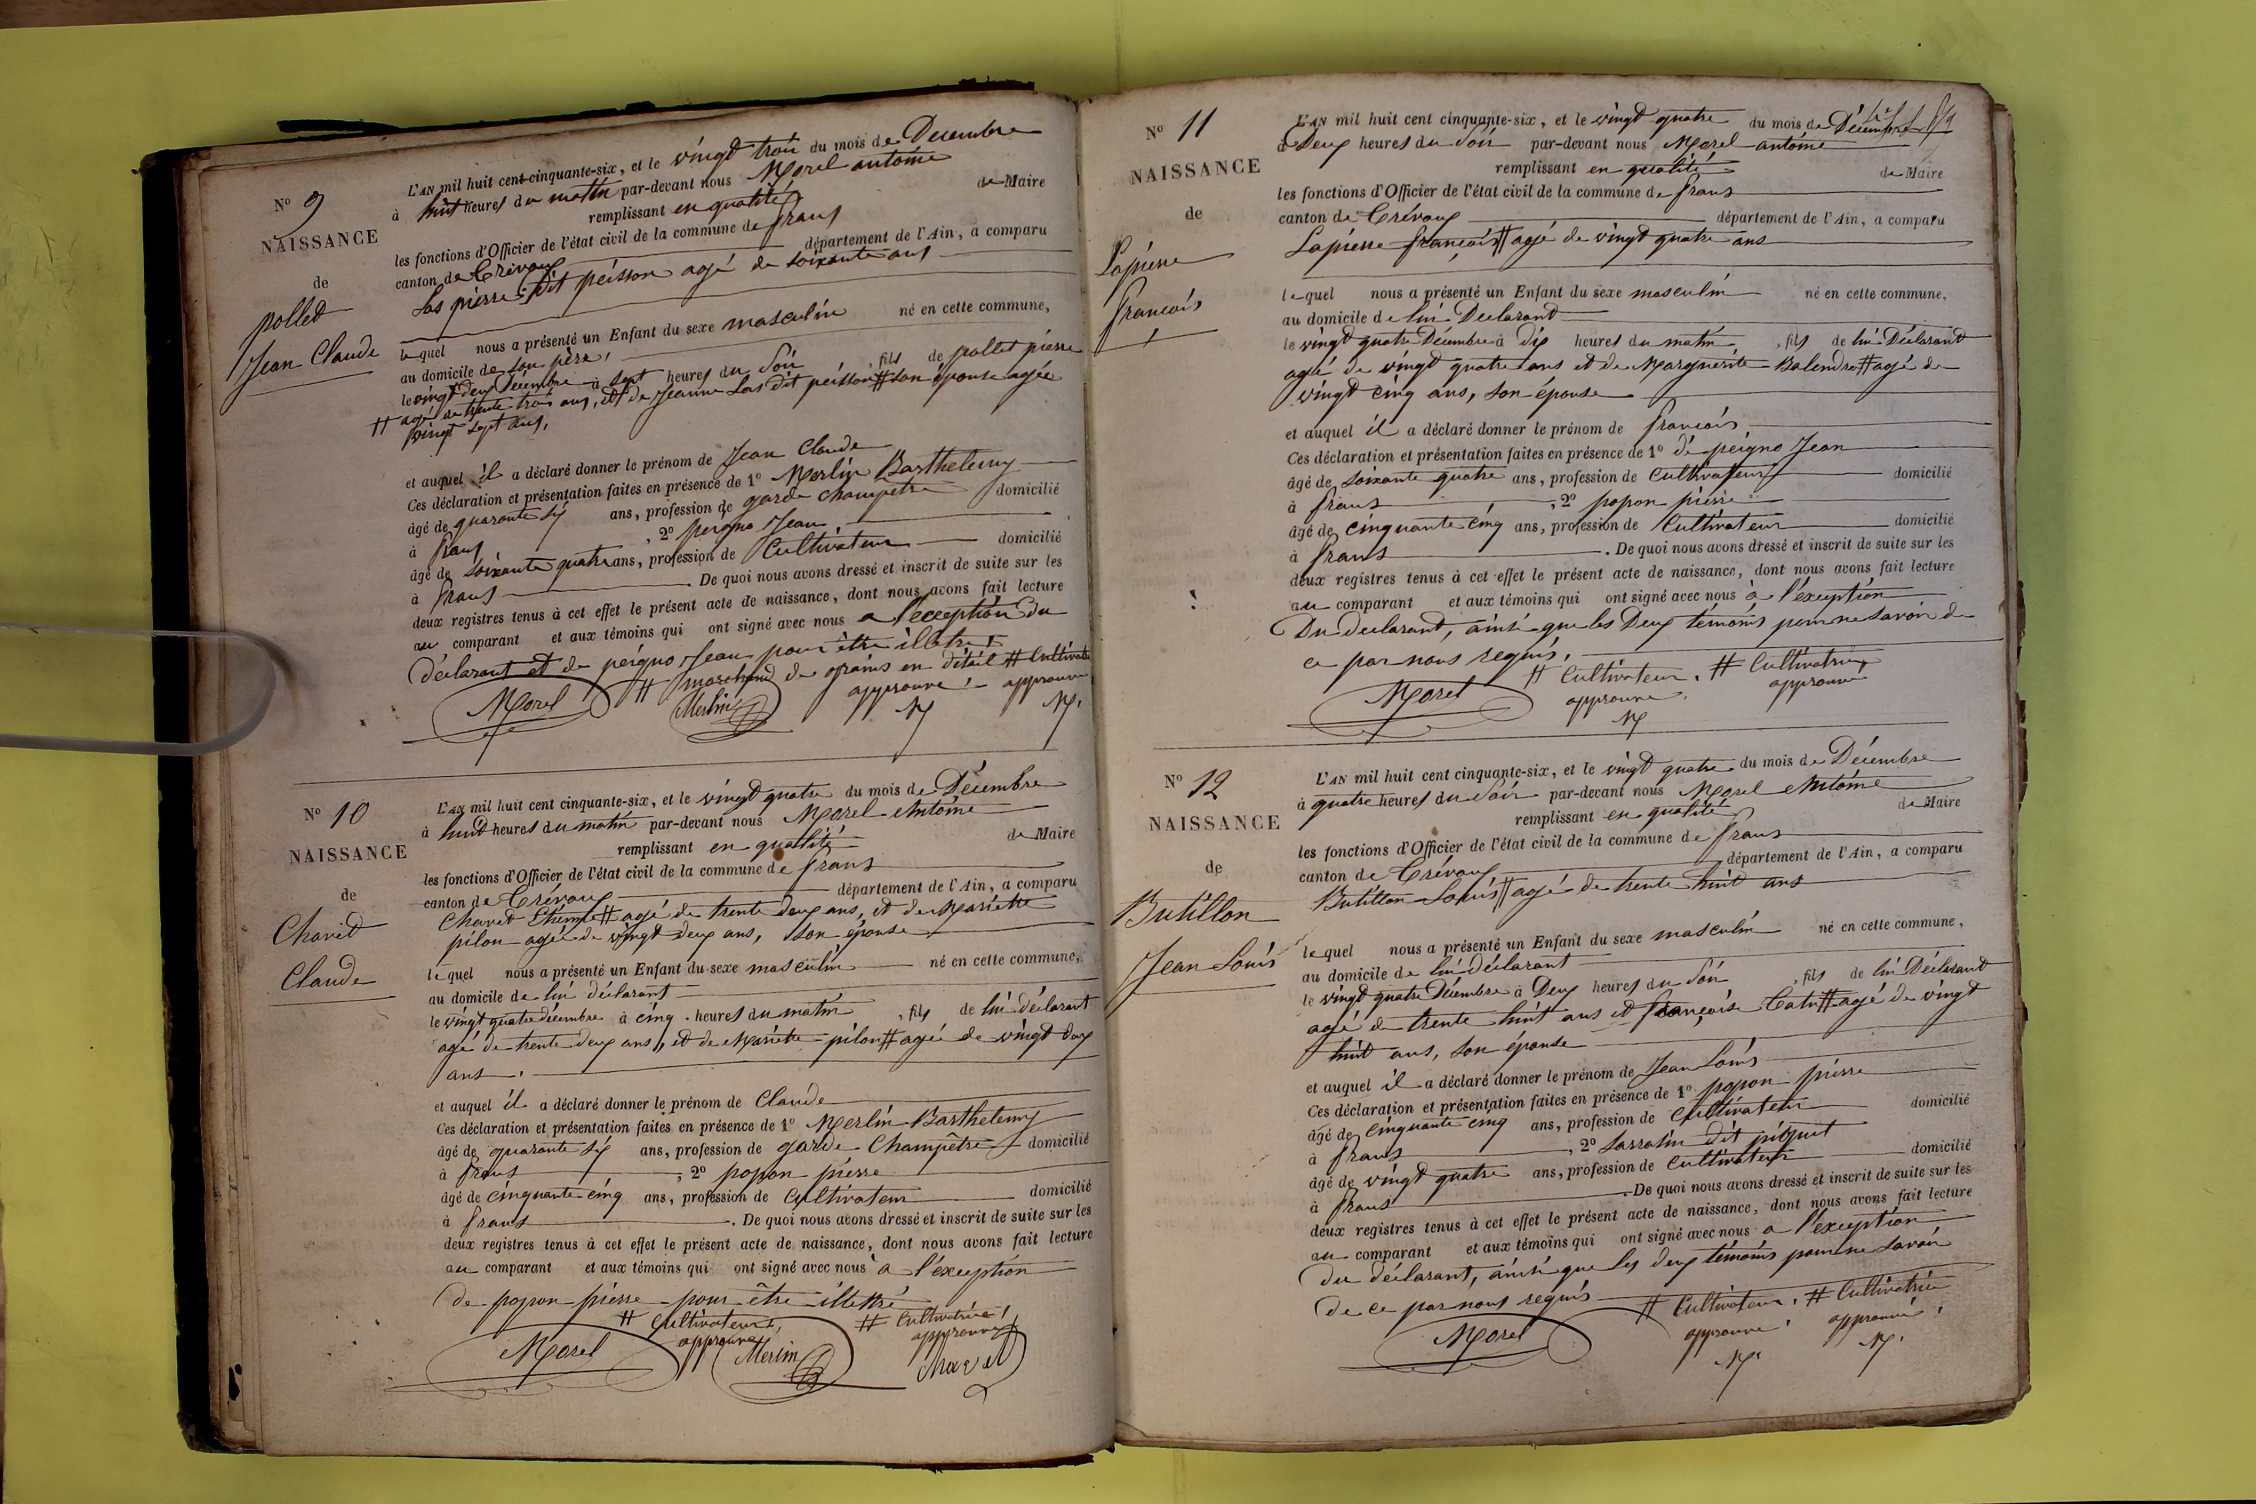 N° 9
NAISSANCE
de
pollet
Jean Claude
L'AN mil huit cent cinquante-six, et le vingt trois du mois de Décembre
à huit heures du matin par-devant nous Morel antoine
remplissant en qualité de Maire
les fonctions d'Officier de l'état civil de la commune de frans
canton de Trévoux département de l'Ain, a comparu
Las pierre dit peisson agé de soixante ans
lequel nous a présenté un Enfant du sexe masculin né en cette commune,
au domicile de son père,
le vingt deux Décembre à sept heures du Soir, fils de pollet pierre
# agé de trente trois ans, et de Jeanne Las dit peisson # son épouse agée
vingt sept ans,
et auquel il a déclaré donner le prénom de Jean Claude
Ces déclaration et présentation faites en présence de 1° Merlin Barthelemy
âgé de quarante six ans, profession de garde champêtre domicilié
à frans, 2° peigno Jean,
âgé de soixante quatre ans, profession de Cultivateur domicilié
à frans. De quoi nous avons dressé et inscrit de suite sur les
deux registres tenus à cet effet le présent acte de naissance, dont nous avons fait lecture
au comparant et aux témoins qui ont signé avec nous a l'exception du
déclarant et de peigno Jean pour être illetré
# marchand de grains en détail # Cultivatr
approuvé approuvé
Morel Merlin M M.
N° 10
NAISSANCE
de
Chavet
Claude
L'AN mil huit cent cinquante-six, et le vingt quatre du mois de Décembre
à huit heures du matin par-devant nous Morel Antoine
remplissant en qualité de Maire
les fonctions d'Officier de l'état civil de la commune de frans
canton de Trévoux département de l'Ain, a comparu
Chavet Etienne # agé de trente deux ans, et de Mariette
pilon agée de vingt deux ans, son épouse
lequel nous a présenté un Enfant du sexe masculin né en cette commune,
au domicile de lui déclarant
le vingt quatre décembre à cinq heures du matin, fils de lui déclarant
agé de trente deux ans, et de Mariette pilon # agé de vingt deux
ans.
et auquel il a déclaré donner le prénom de Claude
Ces déclaration et présentation faites en présence de 1° Merlin Barthelemy
âgé de quarante six ans, profession de garde Champêtre domicilié
à frans, 2° popon pierre
âgé de cinquante cinq ans, profession de Cultivateur domicilié
à frans. De quoi nous avons dressé et inscrit de suite sur les
deux registres tenus à cet effet le présent acte de naissance, dont nous avons fait lecture
au comparant et aux témoins qui ont signé avec nous a l'exception
de popon pierre pour être illettré
# Cultivateur, # Cultivatrice
approuvé approuvé
Morel Merlin Chavet
N° 11
NAISSANCE
de
Lapierre
francois
L'AN mil huit cent cinquante-six, et le vingt quatre du mois de Décembre
à Deux heures du Soir par-devant nous Morel antoine
remplissant en qualité de Maire
les fonctions d'Officier de l'état civil de la commune de frans
canton de Trévoux département de l'Ain, a comparu
Lapierre françois # agé de vingt quatre ans
lequel nous a présenté un Enfant du sexe masculin né en cette commune,
au domicile de lui Declarant
le vingt quatre Décembre à dix heures du matin, fils de lui Déclarant
agé de vingt quatre ans et de Marguerite Balendra # agé de
vingt cinq ans, son épouse
et auquel il a déclaré donner le prénom de francois
Ces déclaration et présentation faites en présence de 1° de peigno Jean
âgé de soixante quatre ans, profession de Cultivateur domicilié
à frans, 2° popon pierre
âgé de cinquante cinq ans, profession de Cultivateur domicilié
à frans. De quoi nous avons dressé et inscrit de suite sur les
deux registres tenus à cet effet le présent acte de naissance, dont nous avons fait lecture
au comparant et aux témoins qui ont signé avec nous à l'exeption
Du declarant, ainsi que les Deux témoins pour ne savoir de
ce par nous requis.
# Cultivateur. # Cultivatrice
approuvé approuvé
Morel M
N° 12
NAISSANCE
de
Butillon
Jean Louis
L'AN mil huit cent cinquante-six, et le vingt quatre du mois de Décembre
à quatre heures du Soir par-devant nous Morel Antoine
remplissant en qualité de Maire
les fonctions d'Officier de l'état civil de la commune de frans
canton de Trévoux département de l'Ain, a comparu
Butillon Louis # agé de trente huit ans
lequel nous a présenté un Enfant du sexe masculin né en cette commune,
au domicile de lui déclarant
le vingt quatre Décembre à Deux heures du Soir, fils de lui Déclarant
agé de trente huit ans et françoise # agé de vingt
huit ans, son épouse
et auquel il a déclaré donner le prénom de Jean Louis
Ces déclaration et présentation faites en présence de 1° popon pierre
âgé de cinquante cinq ans, profession de Cultivateur domicilié
à frans, 2° Sarratin dit piquet
âgé de vingt quatre ans, profession de Cultivateur domicilié
à frans. De quoi nous avons dressé et inscrit de suite sur les
deux registres tenus à cet effet le présent acte de naissance, dont nous avons fait lecture
au comparant et aux témoins qui ont signé avec nous a l'exeption
du déclarant, ainsi que les deux témoins pour ne savoir
de ce par nous requis
# Cultivateur. # Cultivatrice
approuvé approuvé
Morel M. M.